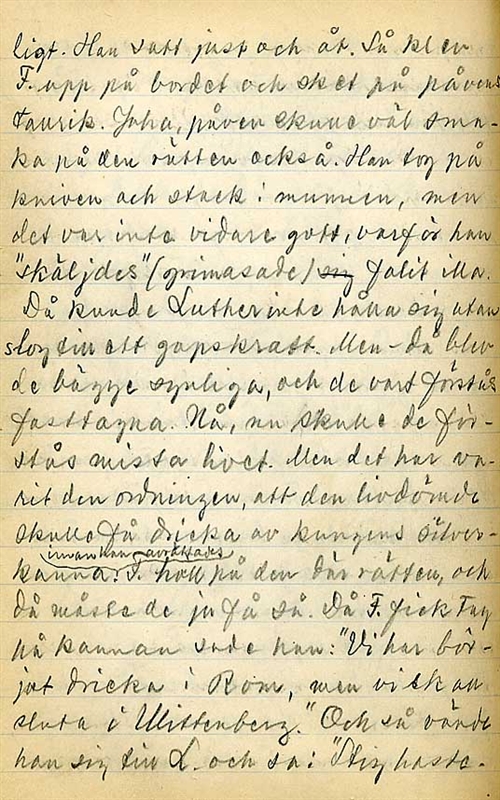 ligt. Han satt just och åt. Så klev
F. upp på bordet och sket på påvens
tallrik. Joha, påven skulle väl sma-
ka på den rätten också. Han tog på
kniven och stack i munnen, men
det var inte vidare gott, varför han
"skäljdes" (grimasade) sig falit illa.
Då kunde Luther inte hålla sig utan
slog till ett gapskratt. Men - då blev
de bägge synliga, och de vart förstås
fasttagna. Nå, nu skulle de för-
stås mista livet. Men det har va-
rit den ordningen, att den livdömde
skulle få dricka av kungens silver-
innan han avrättades
kanna. F. höll på den där rätten, och
då måste de ju få så. Då F. fick tag
på kannan sade han: "Vi har bör-
jat dricka i Rom, men vi ska
sluta i Wittenberg." Och så vände
han sig till L. och sa: "Stig hasta-